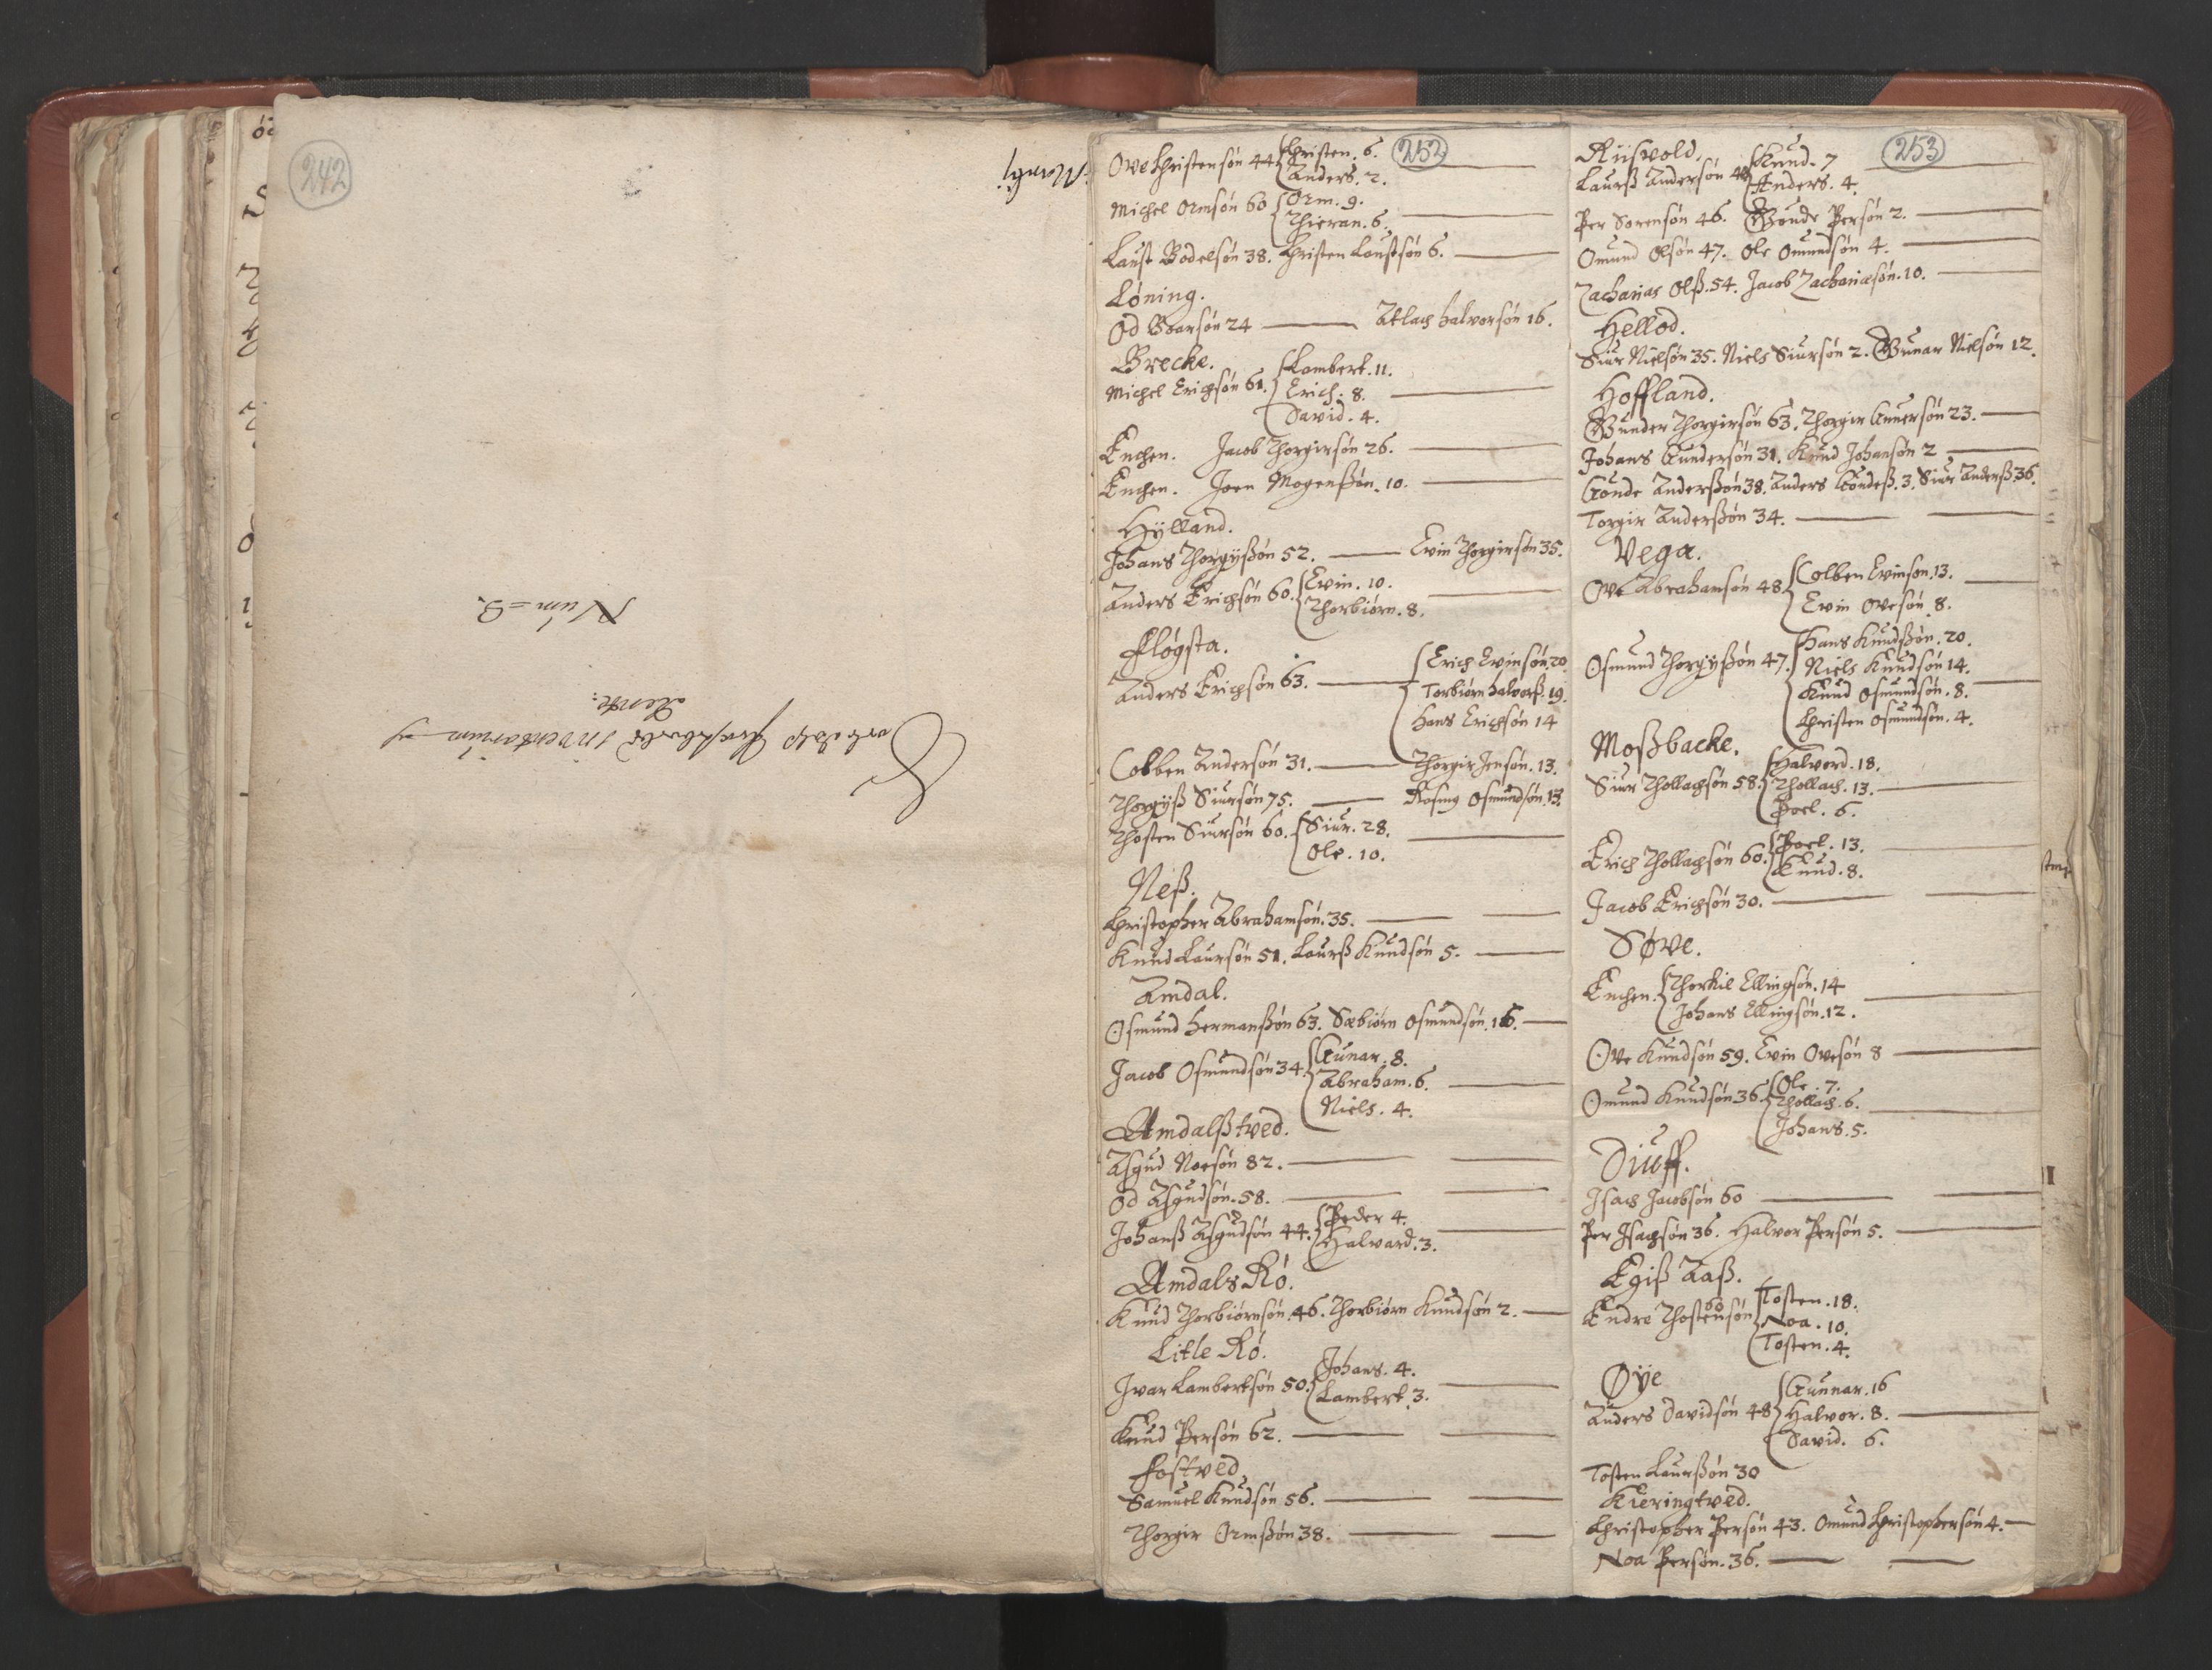 242
Num = 9.
252
Ove Christensön 44 { Christen. 6.
Anders. 2.
Michel Ormsön 60 { Orm. 9.
Thieran. 6.
Laust Bodelsön 38. Christen Laustsön 6.
Löning.
Od Boarsön 24 Atlach halvorsön 16.
Brecke.
Michel Erichsön 61. { Lambert. 11.
Erich. 8.
David. 4.
Enchen. Jacob Thorgirsön 26.
Enchen. Joen Mogenßön. 10.
Hÿlland.
Johans Thorgÿßön 52. Evin Thorgirsön 35.
Anders Erichsön 60. { Evin. 10.
Thorbiörn. 8.
Flögsta.
Anders Erichsön 63. { Erich Evinsön. 20
Torbiörn halvorß. 19.
Hans Erichsön 14
Colben Andersön 31. Thorgir Jensön. 13.
Thorgÿß Siursön 75. Rasmg Osmundsön. 13.
Thosten Siursön 60. { Siur. 28.
Ole. 10.
Neß.
Christopher Abrahamsön. 35.
Knud Laursön 51. Laurß Knudsön 5.
Amdal.
Osmund Hermanßön 63. Sæbiörn Osmundsön. 16.
Jacob Osmundsön 34. { Gunar. 8.
Abraham. 6.
Niels. 4.
Amdalßtved.
Asgud Noesön 82.
Od Asgudsön. 58.
Johanß Asgudsön 44. { Peder 4.
Halvard. 3.
Amdals Rö.
Knud Thorbiörnsön. 46. Thorbiörn Knudsön 2.
Litle Rö.
Ivar Lambertsön 50. { Johans. 4.
Lambert. 3.
Knud Persön 62.
Fostved
Samuel Knudsön 56.
Thorgir Ormßön 38.
253
Riisvold.
Laurß Andersön { Knud. 7
Anders. 4.
Per Sorensön 46. Gunde Persön 2.
Omund Olsön 47. Ole Omundsön 4.
Zacharias Olß. 54. Jacob Zachariæsön. 10.
Hellod.
Siur Nielsön 35. Niels Siursön 2. Gunar Nielsön 12.
Hoffland.
Gunder Thorgirsön 63. Thorgir Gunersön 23.
Johans Gundersön 31. Knud Johansön 2
Gonde Anderßön 38. Anders Gondeß. 3. Siur Anderß 36.
Torgir Anderßön 34.
Vega.
Ove Abrahamsön 48. { Colben Evinsön. 13.
Evin Ovesön. 8.
Osmund Thorgÿßön 47. { Hans Knudßön. 20.
Niels Knudsön 14.
Knud Osmundsön. 8.
Christen Osmundsön. 4.
Moßbacke.
Siur Thollachsön 58. { Halvord. 18.
Thollach. 13.
Poel. 6.
Erich Thollachsön 60. { Poel. 13.
Knud. 8.
Jacob Erichsön 30.
Søve.
Enchen. { Thorkil Ellingsön. 14
Johans Ellingsön. 12.
Ove Knudsön 59. Evin Ovesön 8
Omund Knudsön 36. { Ole. 7.
Thollach. 6.
Johans. 5.
Diuff.
Isach Jacobsön 60
Per Isachsön 36. Halvor Persön 5.
Egiß Aaß.
Endre Thostensön 60 { Tosten. 18.
Noa. 10.
Tosten. 4.
Øÿe
Anders Davidsön 48 { Gunnar. 16
Halvor. 8.
David. 6.
Tosten Laurßön 30
Kieringtved.
Christopher Persön 43. Omund Christophersön 4.
Noa Persön. 36.